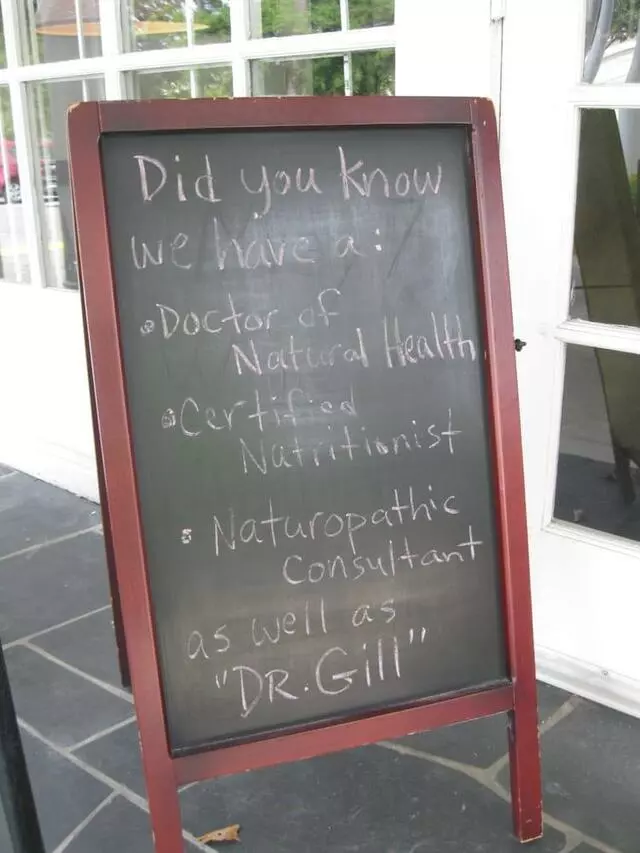 Did you know
we have a:
• Doctor of
Natural Health
• Certified
Nutritionist
• Naturopathic
Consultant
as well as
"DR. Gill"